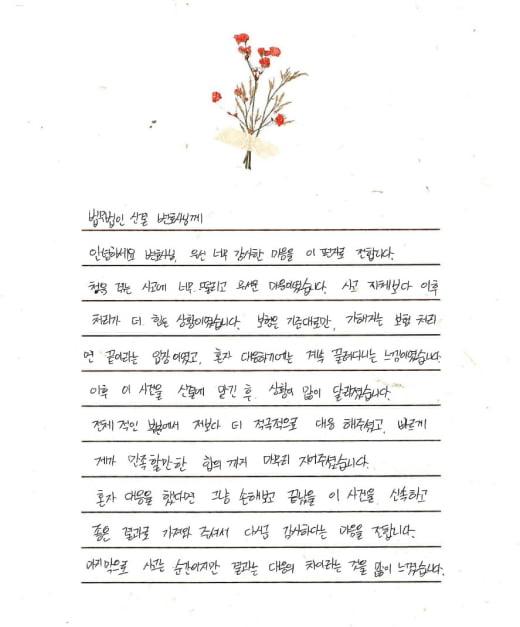 법무법인 산꽃 변호사님께
안녕하세요 변호사님, 우선 너무 감사한 마음을 이 편지로 전합니다.
처음 겪는 사고에 너무 떨리고 무서운 마음이였습니다. 사고 자체보다 이후
처리가 더 힘든 상황이였습니다. 보험은 기준대로만, 가해자는 보험 처리
면 끝이라는 입장이였고, 혼자 대응하기에는 계속 끌려다니는 느낌이였습니다.
이후 이 사건을 산꽃에 맡긴 후 상황이 많이 달라졌습니다.
전체적인 부분에서 저보다 더 적극적으로 대응 해주셨고, 빠르게
제가 만족할만한 합의까지 마무리 지어주셨습니다.
혼자 대응을 했다면 그냥 손해보고 끝났을 이 사건을 신속하고
좋은 결과로 가져와 주셔서 다시금 감사하다는 마음을 전합니다.
마지막으로 사고는 순간이지만 결과는 대응의 차이라는 것을 많이 느꼈습니다.